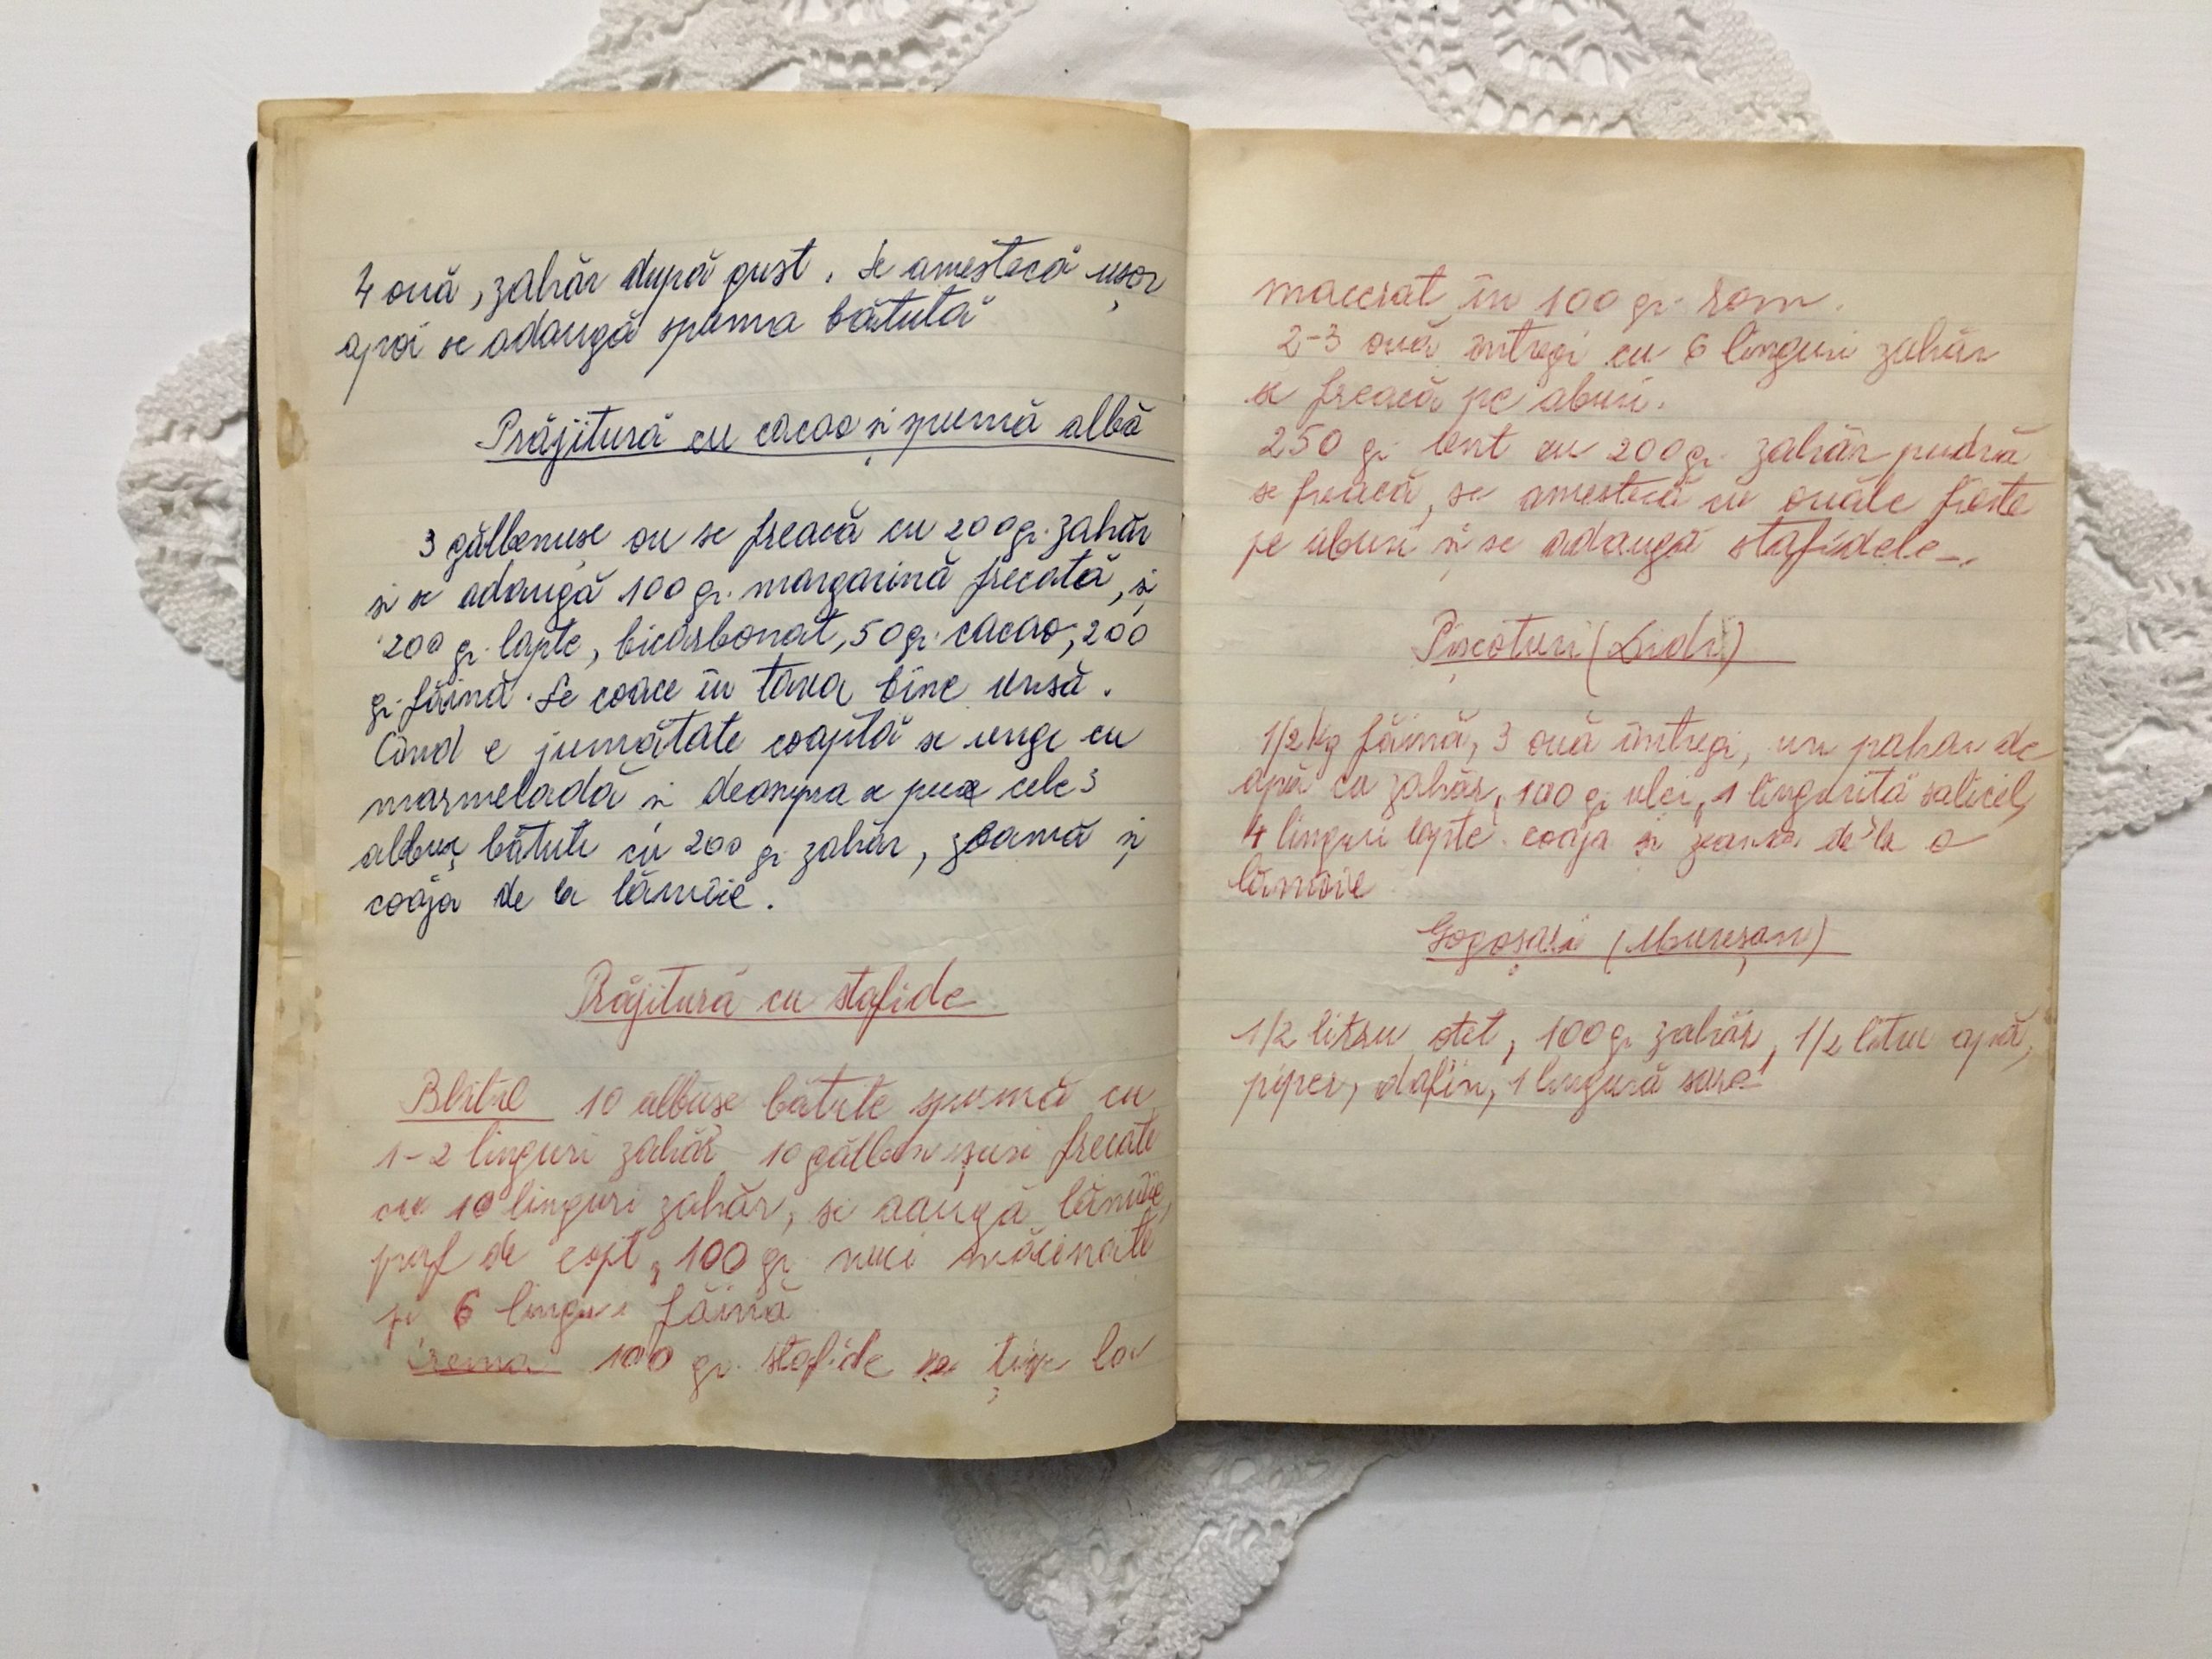 4 ouă, zahăr după gust. Se amestecă ușor
apoi se adaugă spuma bătută
Prăjitură cu cacao și spumă albă
3 gălbenușe ou se freacă cu 200 gr. zahăr
și se adaugă 100 gr. margarină frecată, și
200 gr. lapte, bicarbonat, 50 gr. cacao, 200
gr. făină. Se coace în tava bine unsă.
Când e jumătate coaptă se unge cu
marmeladă și deasupra se pune cele 3
albuș bătute cu 200 gr. zahăr, zeamă și
coaja de la lămîie.
Prăjitură cu stafide
Blatul 10 albușe bătute spumă cu
1-2 linguri zahăr 10 gălbenușuri frecate
cu 10 linguri zahăr, se aaugă lămîie,
praf de copt, 100 gr. nuci măcinate
și 6 linguri făină
Crema 100 gr. stafide se ține la
macerat în 100 gr. rom.
2-3 ouă întregi cu 6 linguri zahăr
se freacă pe aburi.
250 gr. unt cu 200 gr. zahăr pudră
se freacă, se amestecă cu ouăle fierte
pe aburi și se adaugă stafidele.
Pișcoturi (Didi)
1/2 kg făină, 3 ouă întregi, un pahar de
apă cu zahăr, 100 gr. ulei, 1 linguriță salicil,
4 linguri lapte. coaja și zeama de la o
lămîie
Gogoșari (Mureșan)
1/2 litru otet, 100 gr. zahăr, 1/2 litru apă,
piper, dafin, 1 lingură sare